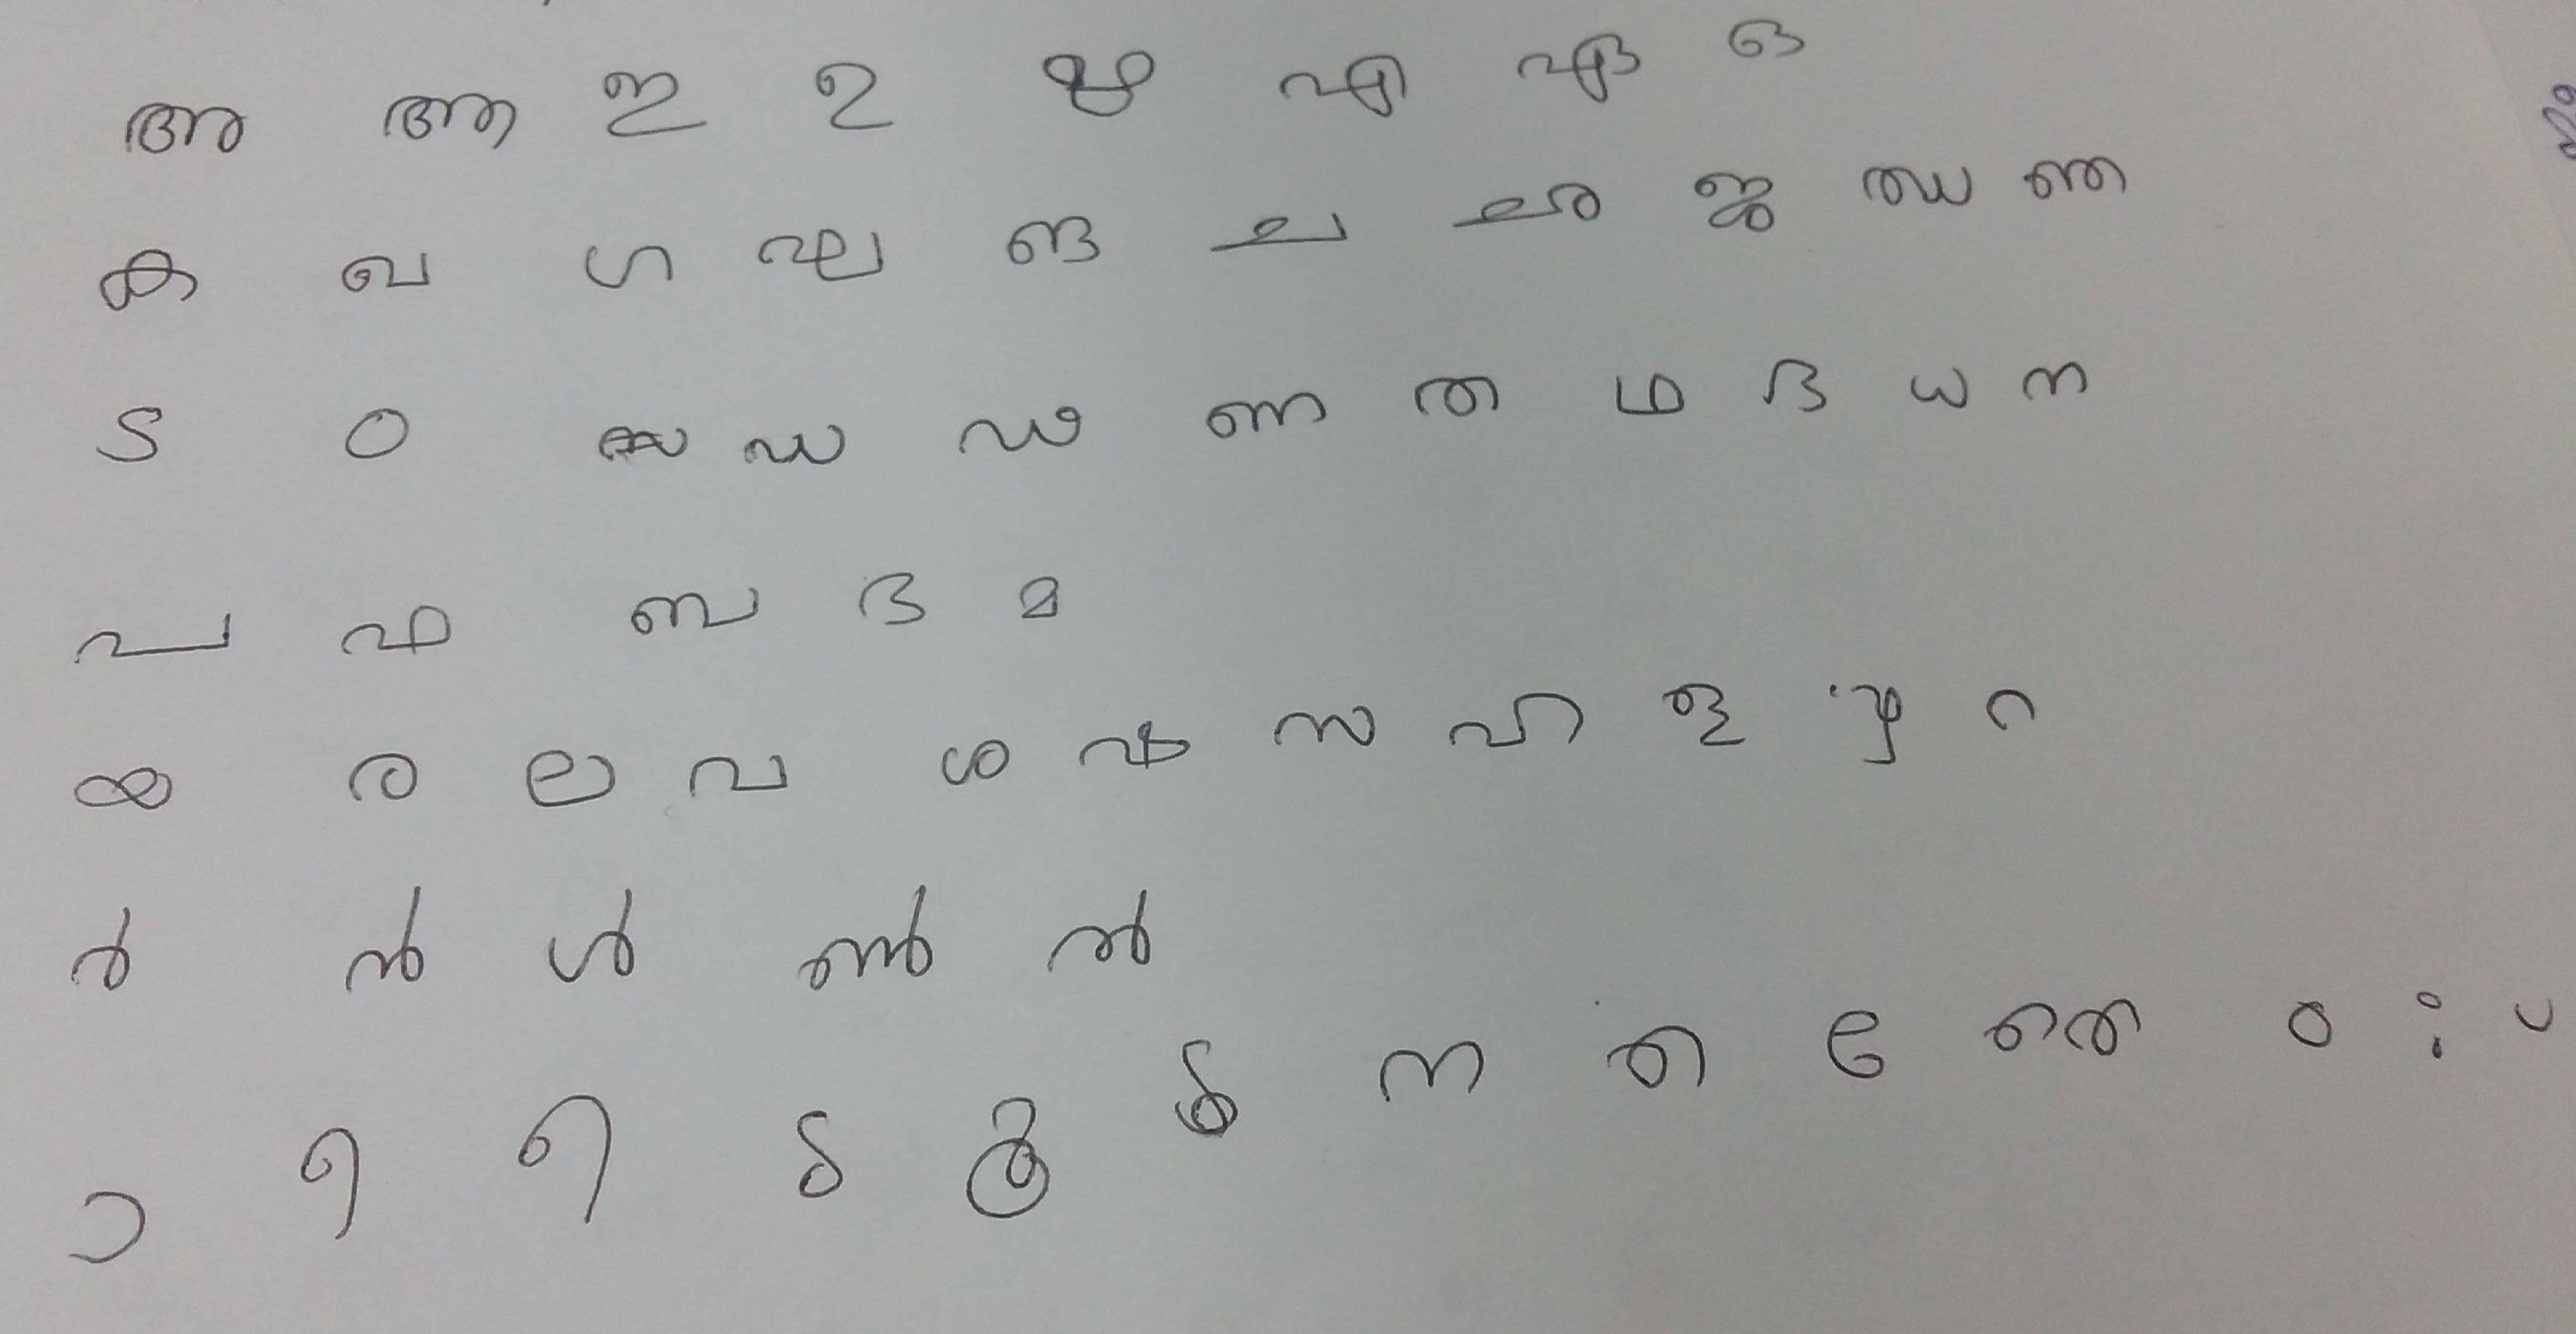 അ ആ ഇ ഉ ഋ എ ഏ ഒ
ക ഖ ഗ ഘ ങ ച ഛ ജ ഝ ഞ
ട ഠ ഡ ഢ ണ ത ഥ ദ ധ ന
പ ഫ ബ ഭ മ
യ ര ല വ ശ ഷ സ ഹ ള ഴ റ
ർ ൻ ൾ ൺ ൽ
ാ ി ീ ു ൂ ൃ െ േ ൈ ം ഃ ്